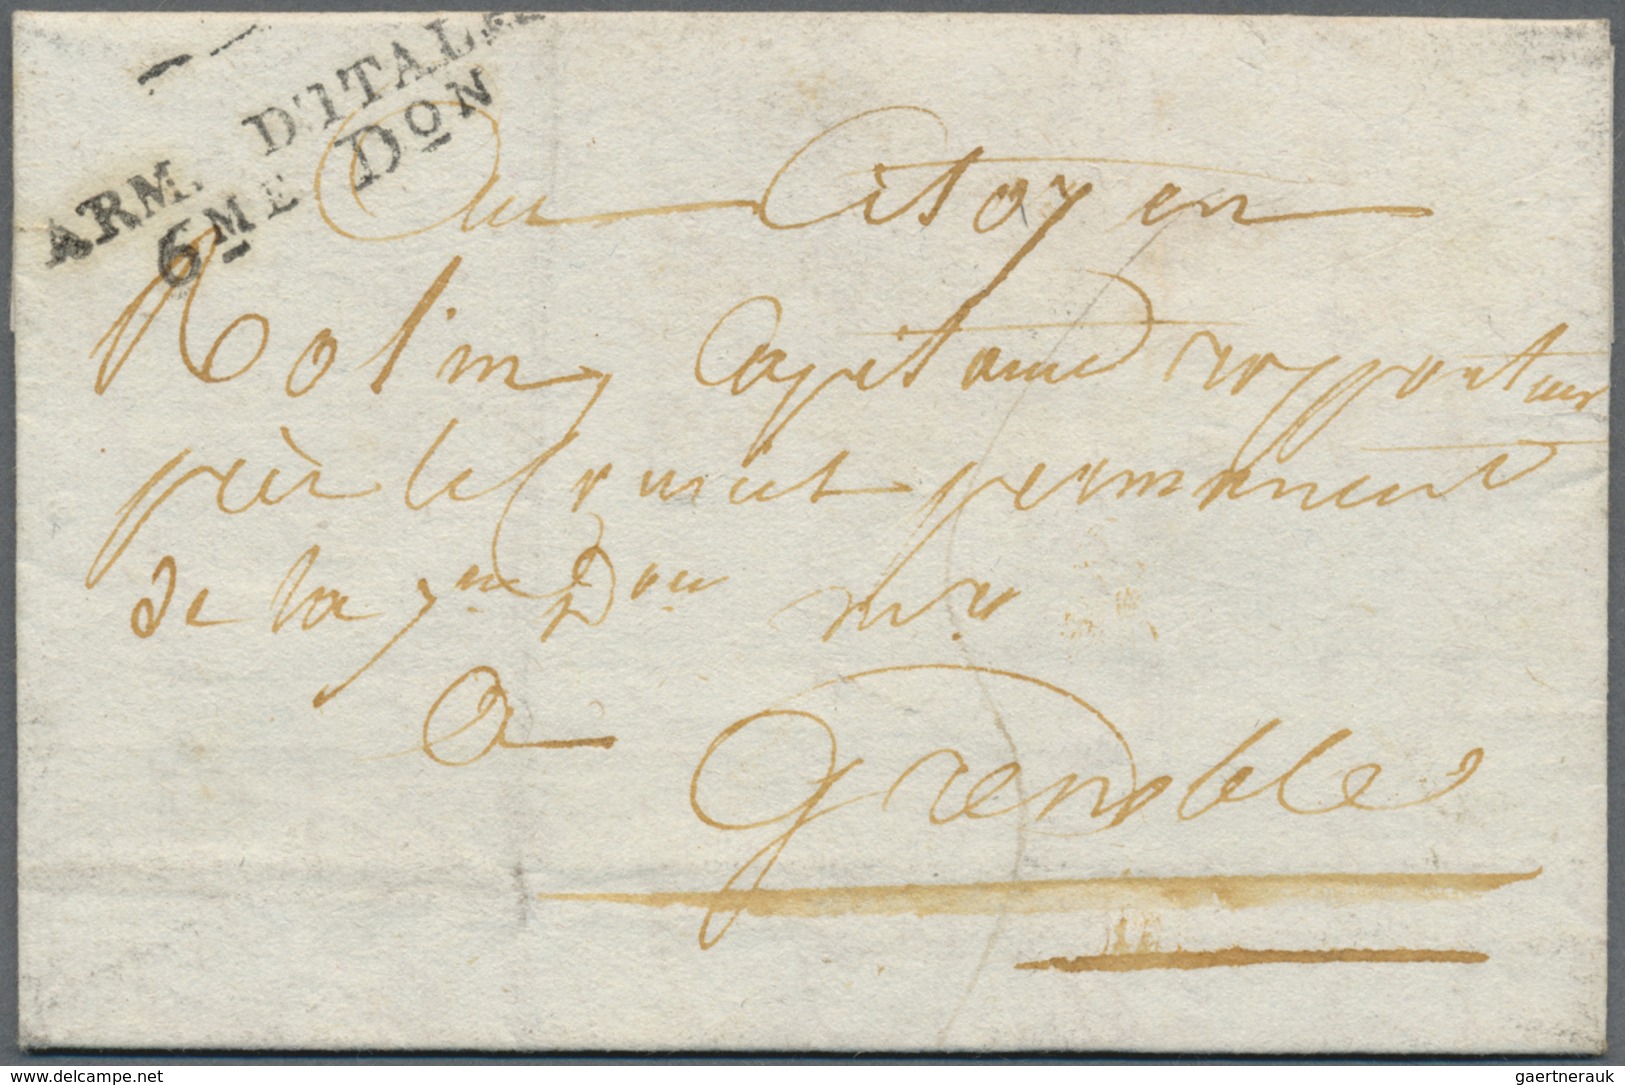 ARM. D'ITALIE
6ME DON
Au Citoyen
Rolin, Capitaine rapporteur
près le Conseil permanent
de la 7me Don mre
A
Grenoble
delcampe.net
gaertnerauk